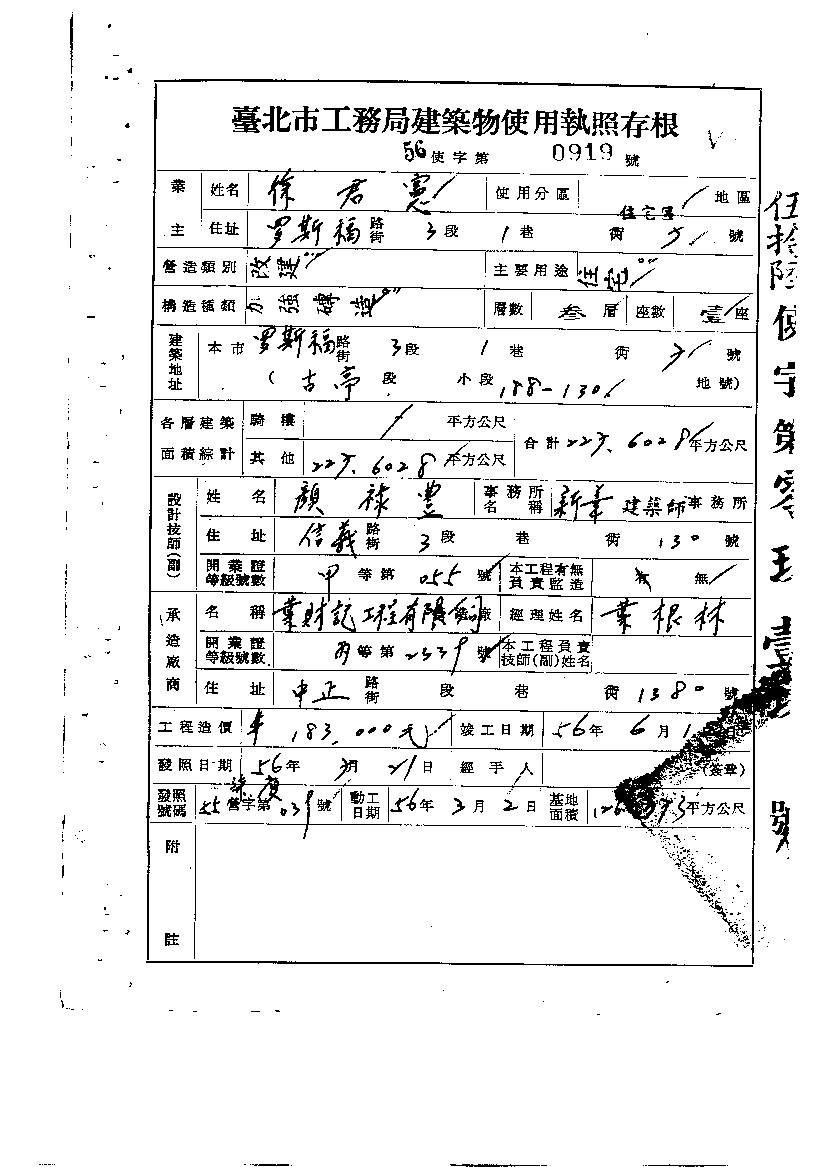 臺北市工務局建築物使用執照存根
56使字第 0919 號
業主 姓名 徐君憲 使用分區 住宅區 地區
住址 罗斯福 路街 3段 1巷 衖 號
營造類別 改建 主要用途 住宅
構造種類 加強磚造 層數 叁層 座數 壹座
建築地址 本市 罗斯福 路街 3段 1巷 衖 號
(古亭段 小段 188-130 地號)
各層建築面積綜計 騎樓 / 平方公尺 合計 平方公尺
其他 平方公尺
設計技師(副) 姓名 顏祿豐 事務所名稱 新華建築師事務所
住址 信義 路街 3段 巷 衖 130號
開業證等級號數 甲等第055號 本工程有無負責監造 有 無
承造廠商 名稱 葉財記工程有限公司 經理姓名 葉根林
開業證等級號數 丙等第 號 本工程負責技師(副)姓名
住址 中正 路街 段 巷 衖 1380號
工程造價 183,000元 竣工日期 56年 6月 1
發照日期 56年 月21日 經手人 (簽章)
發照號碼 55營字第 號 動工日期 56年3月2日 基地面積 平方公尺
附註
伍拾陸使字第零玖壹 號